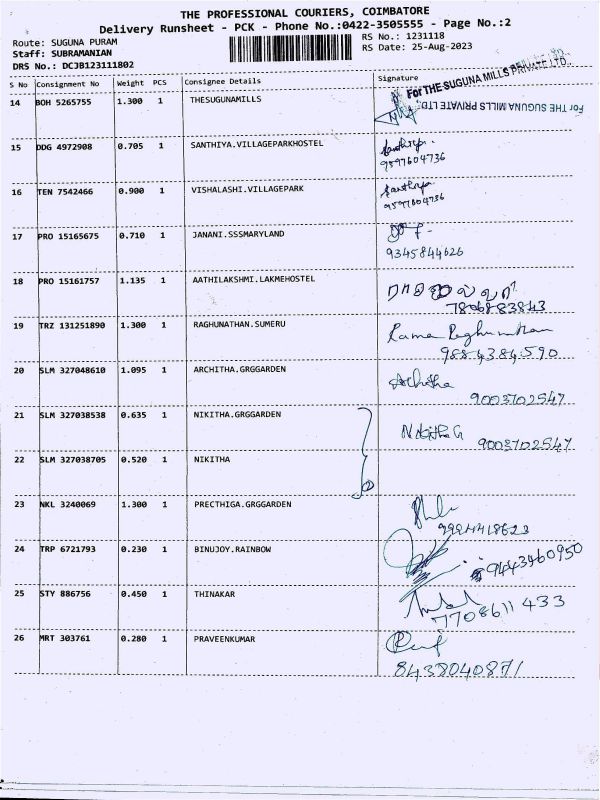 THE PROFESSIONAL COURIERS, COIMBATORE
Delivery Runsheet - PCK - Phone No.:0422-3505555 - Page No.:2
Route: SUGUNA PURAM RS No.: 1231118
Staff: SUBRAMANIAN RS Date: 25-Aug-2023
DRS No.: DCJB123111802
S No Consignment No Weight PCS Consignee Details Signature
For THE SUGUNA MILLS PRIVATE LTD.
14 BOH 5265755 1.300 1 THESUGUNAMILLS
For THE SUGUNA MILLS PRIVATE LTD.
15 DDG 4972908 0.705 1 SANTHIYA.VILLAGEPARKHOSTEL
9597604736
16 TEN 7542466 0.900 1 VISHALASHI.VILLAGEPARK
9597604736
17 PRO 15165675 0.710 1 JANANI.SSSMARYLAND
9345844626
18 PRO 15161757 1.135 1 AATHILAKSHMI.LAKMEHOSTEL
19 TRZ 131251890 1.300 1 RAGHUNATHAN.SUMERU
Rama Raghunathan
9884384590
20 SLM 327048610 1.095 1 ARCHITHA.GRGGARDEN
Architha
9003702547
21 SLM 327038538 0.635 1 NIKITHA.GRGGARDEN
Nikitha G 9003702547
22 SLM 327038705 0.520 1 NIKITHA
23 NKL 3240069 1.300 1 PRECTHIGA.GRGGARDEN
9994418623
24 TRP 6721793 0.230 1 BINUJOY.RAINBOW
9443960950
25 STY 886756 0.450 1 THINAKAR
7708611433
26 MRT 303761 0.280 1 PRAVEENKUMAR
8438040871